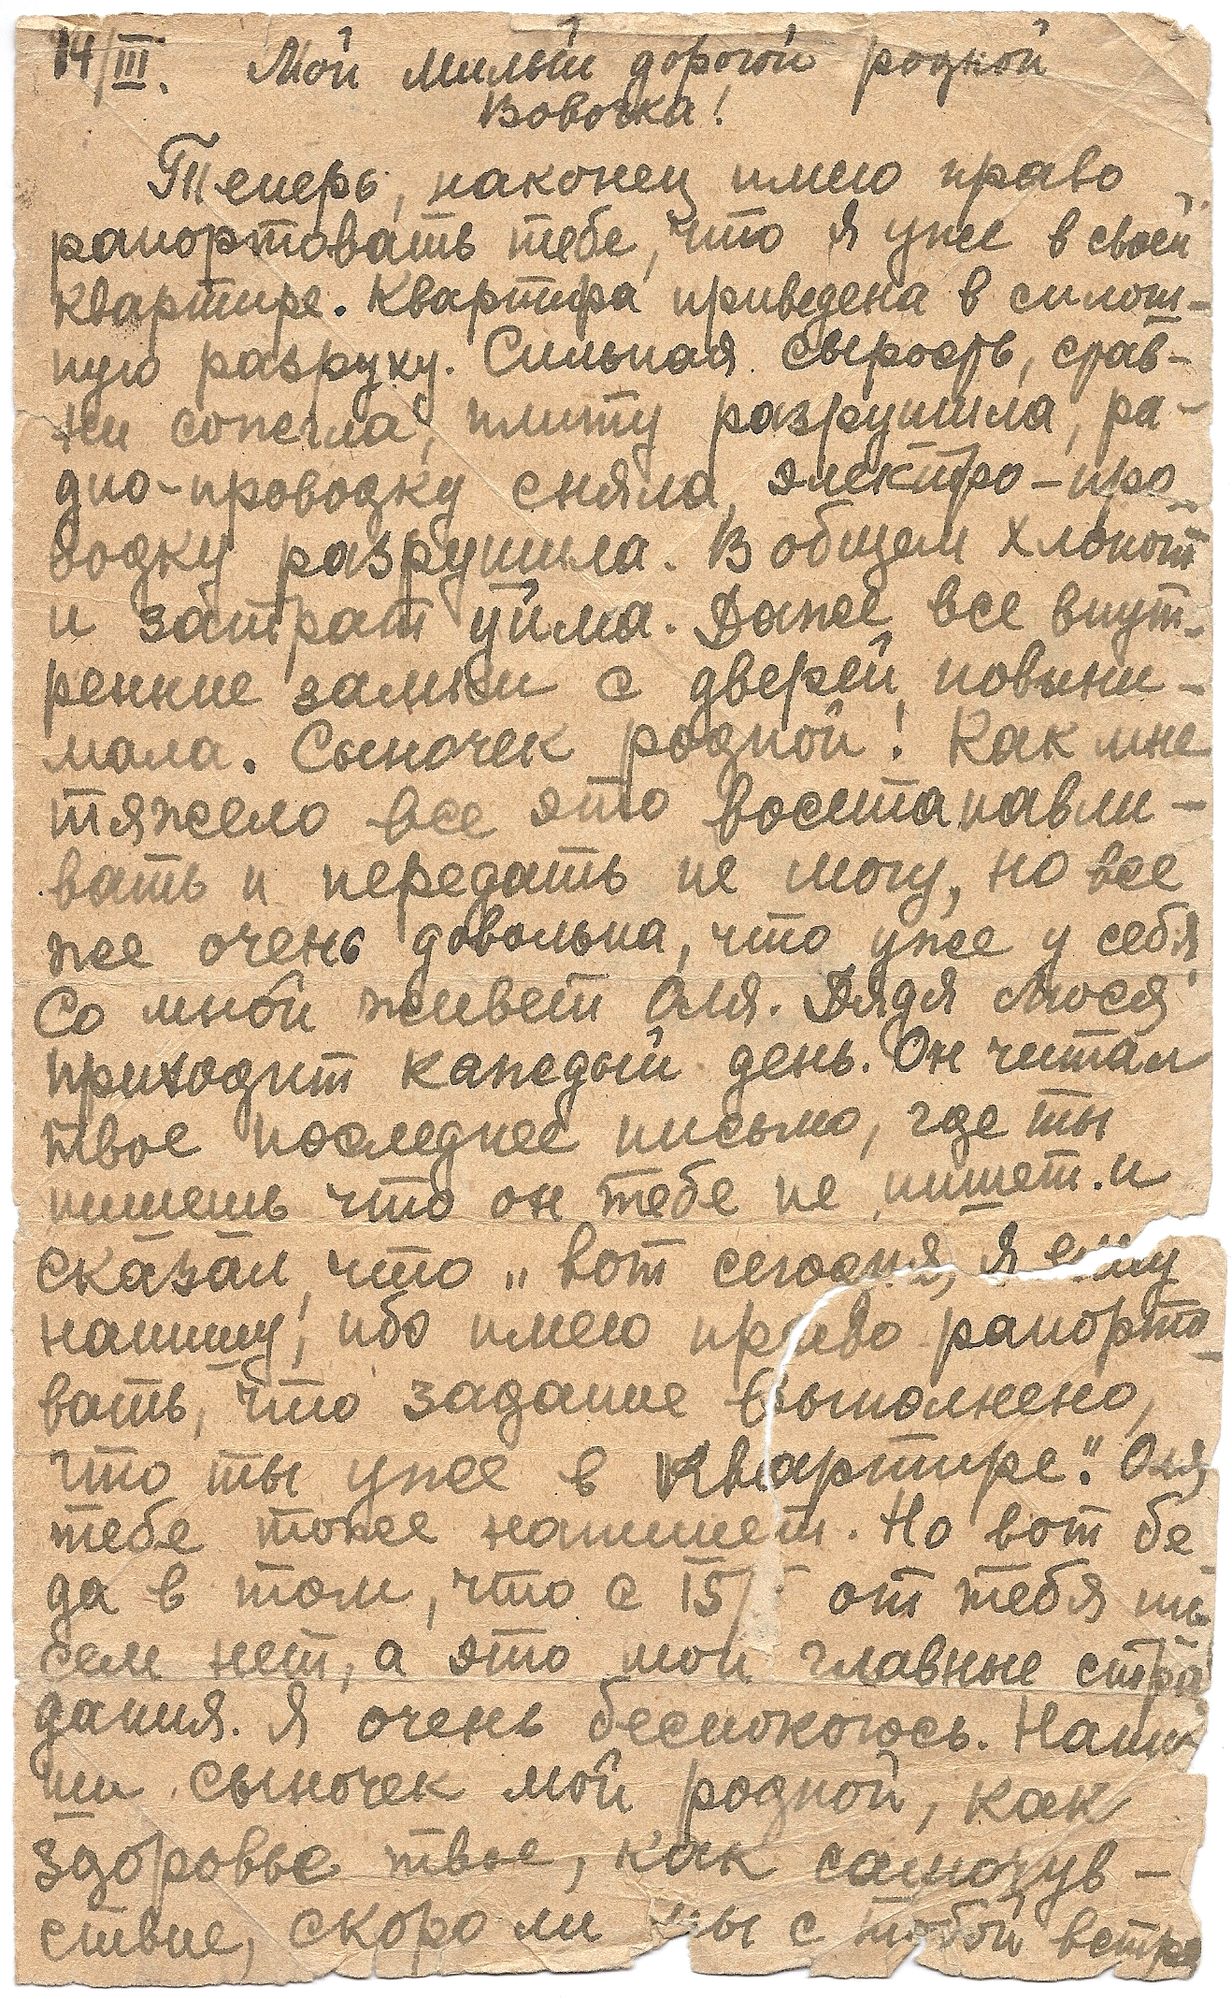 14/III. Мой милый дорогой родной
Вовочка!
Теперь, наконец имею право
рапортовать тебе, что я уже в своей
квартире. Квартира приведена в сплош-
ную разруху. Сильная сырость, став-
ни сожгла, плиту разрушила, ра-
дио-проводку сняла, электро-про
водку разрушила. В общем хлопот
и затрат уйма. Даже все внут-
ренние замки с дверей повыни-
мала. Сыночек родной! Как мне
тяжело все это восстанавли-
вать и передать не могу, но все
же очень довольна, что уже у себя.
Со мной живет Оля. Дядя Мося
приходит каждый день. Он читал
твое последнее письмо, где ты
пишешь что он тебе не пишет. и
сказал, что „вот сегодня, я ему
напишу, ибо имею право рапорто
вать, что задание выполнено,
что ты уже в квартире." Оля
тебе тоже напишет. Но вот бе
да в том, что с 15/ от тебя пи
сем нет, а это мои главные стра
дания. Я очень беспокоюсь. Напи
ши сыночек мой родной, как
здоровье твое, как самочув-
ствие, скоро ли мы с тобой встре